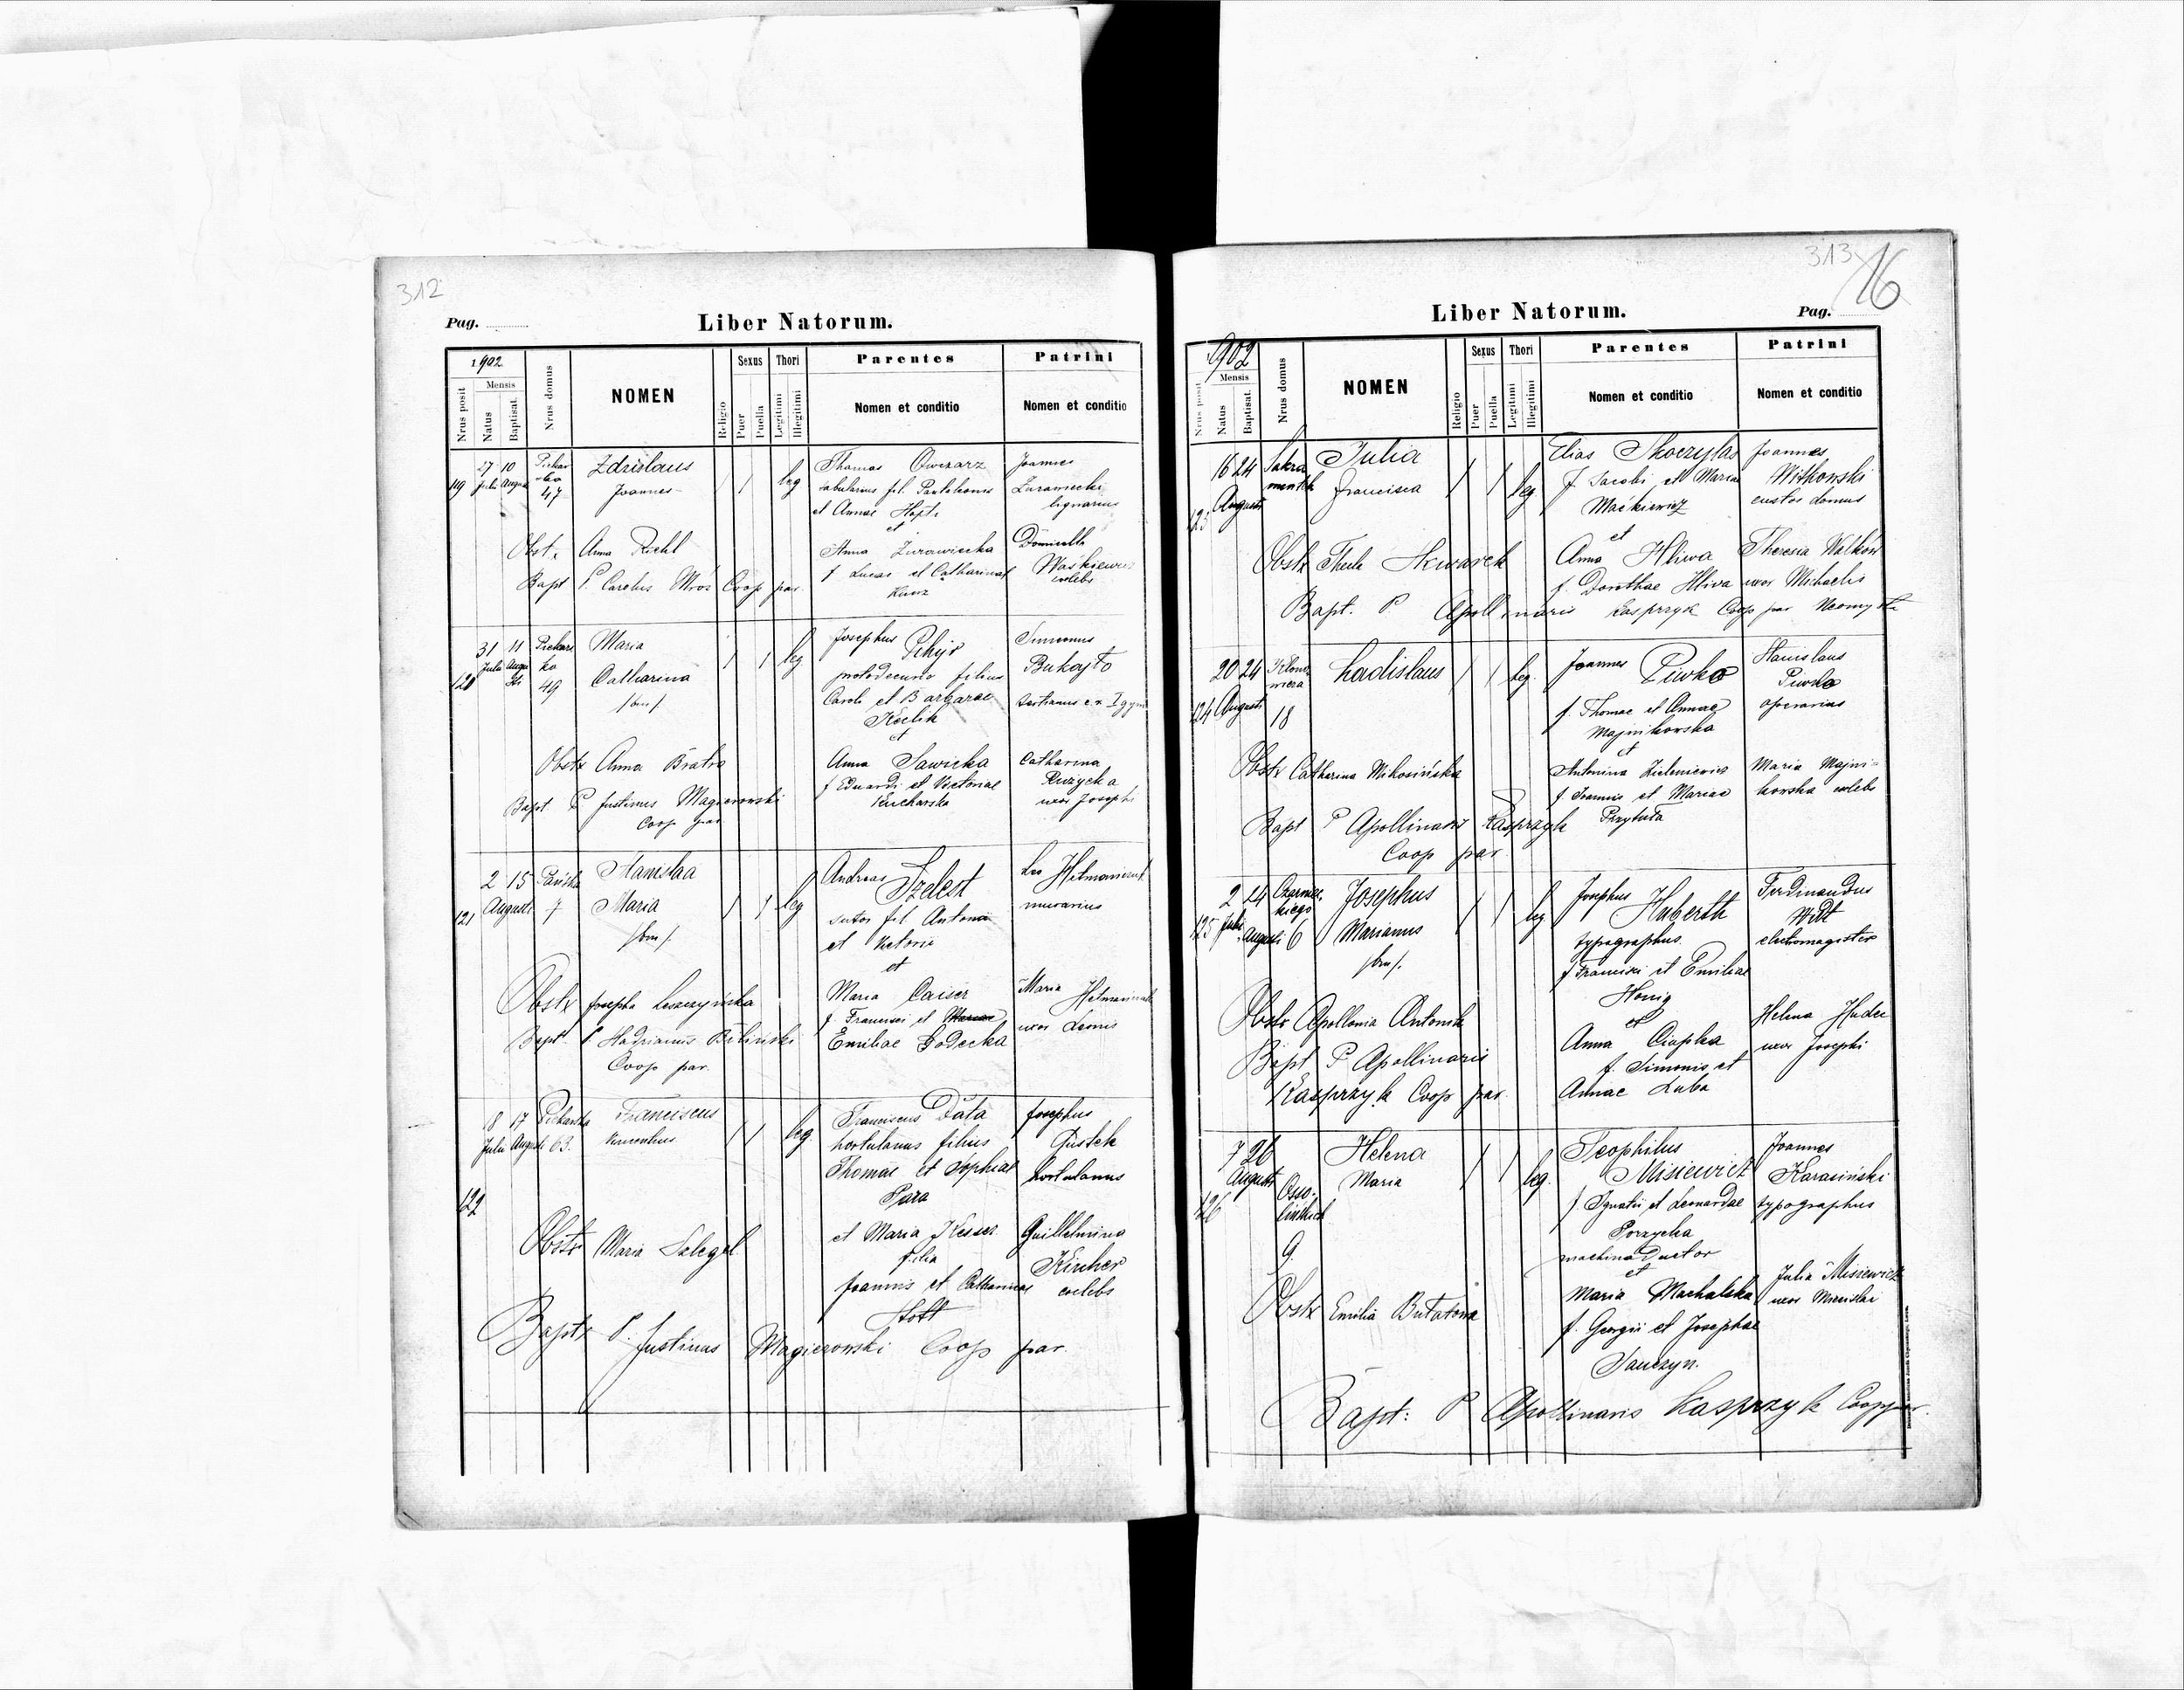 312
Pag.
Liber Natorum.
1902
Nrus posit
Mensis
Natus
Baptisat.
Nrus domus
NOMEN
Religio
Sexus
Puer
Puella
Thori
Legitimi
Illegitimi
Parentes
Nomen et conditio
Patrini
Nomen et conditio
119
27 10
Julii Augusti
47
Zdzislaus
Joannes
leg
Thomas Owczarz
tabularius fil. Pantaleonis
et Annae Hopti
et
Anna Zurawiecka
f Lucae et Catharinae
Kunz
Joannes
Zurawiecki
lignarius
Domicella
Waśkiewicz
coelebs
Obst. Anna Riehl
Bapt P. Carolus Mroz Coop par.
120
31 11
Julii Augusti
49
Maria
Catharina
/bm/.
leg
Josephus Pchyr
filius
Caroli et Barbarae
Kielik
et
Anna Sawicka
f Eduardi et Victoriae
Kucharska
Bukajło
Catharina
Ruzycka
uxor Josephi
Obstr Anna Bratro
Bapt P Justinus Magierowski
Coop par
121
2 15
Augusti
7
Stanislaa
Maria
/bm/.
leg
Andreas Szelest
sutor fil. Antonii
et Victorii
et
Maria Caiser
f. Francisci et
Emiliae Godecka
Leo
murarius
Maria
uxor Leonis
Obstr Josepha Leszczyńska
Bapt. P. Hadrianus Biliński
Coop par.
122
8 17
Julii Augusti
63.
Franciscus
leg
Franciscus Data
hortulanus filius
Thomae et Sophiae
Para
et Maria Kesser
filia
Joannis et Catharinae
Hott
Josephus
Gustek
hortulanus
Guillelmina
Kircher
coelebs
Obstr Maria Salegel
Bapt P. Justinus Magierowski Coop par.
313
16
Liber Natorum.
Pag.
1902
Nrus posit
Mensis
Natus
Baptisat.
Nrus domus
NOMEN
Religio
Sexus
Puer
Puella
Thori
Legitimi
Illegitimi
Parentes
Nomen et conditio
Patrini
Nomen et conditio
123
16 24
Augusti
Julia
Francisca
leg
Elias Skoczylas
f Jacobi et Maria
Maćkiewicz
et
Anna Hliwa
f. Dorothae Hliwa
Joannes
Witkowski
custos domus
Theresia Walków
uxor Michaelis
Obstr Thecla Skwarek
Bapt. P Apollinaris Kasprzyk Coop par
124
20 24
Augusti
18
Ladislaus
leg.
Joannes Piwko
f. Thomae et Annae
Majnikowska
et
Antonina Zieleniewicz
f. Joannis et Mariae
Przytuła
Stanislaus
Piwko
operarius
Maria Majni-
kowska coelebs
Obstr Catharina Mikosińska
Bapt P Apollinaris Kasprzyk
Coop par.
125
2 24
Julii Augusti
Czarniec-
kiego
6
Josephus
Marianus
/bm/.
leg
Josephus Huberth
typographus
f Francisci et Emiliae
Honig
et
Anna Ciapka
f. Simonis et
Annae Luba
Ferdinandus
Witt
electromagister
Helena Hudec
uxor Josephi
Obstr Apollonia Antonik
Bapt P Apollinaris
Kasprzyk Coop par.
126
7 26
Augusti
Osso-
lińskich
9
Helena
Maria
leg.
Teophilus
Misiewicz
f. Ignatii et Leonardae
Porzycka
machina ductor
et
Maria Machalska
f. Georgii et Josephae
Sauczyn.
Joannes
Karasiński
typographus
Julia Misiewicz
uxor Miecislai
Obstr Emilia Butatona
Bapt: P Apollinaris Kasprzyk Coop par.